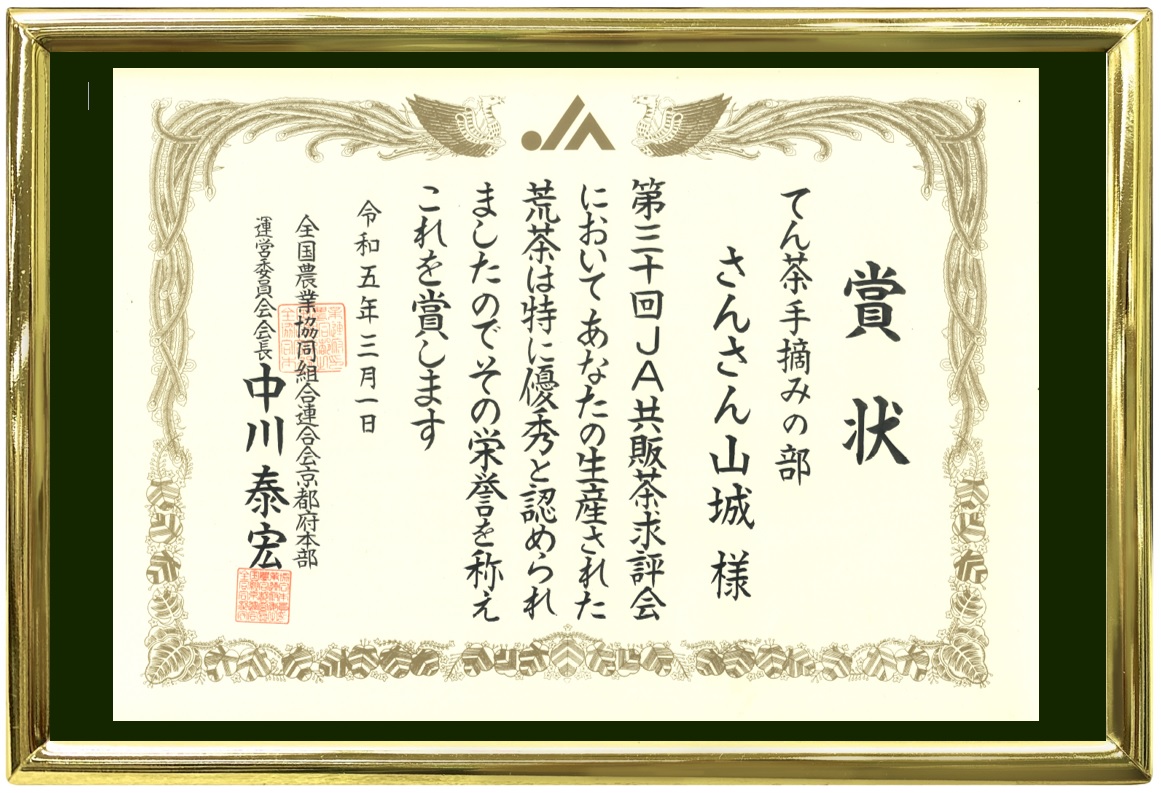 賞状
てん茶手摘みの部
さんさん山城 様
第三十回JA共販茶求評会
においてあなたの生産された
荒茶は特に優秀と認められ
ましたのでその栄誉を称え
これを賞します
令和五年三月一日
全国農業協同組合連合会京都府本部
運営委員会会長 中川泰宏
JA